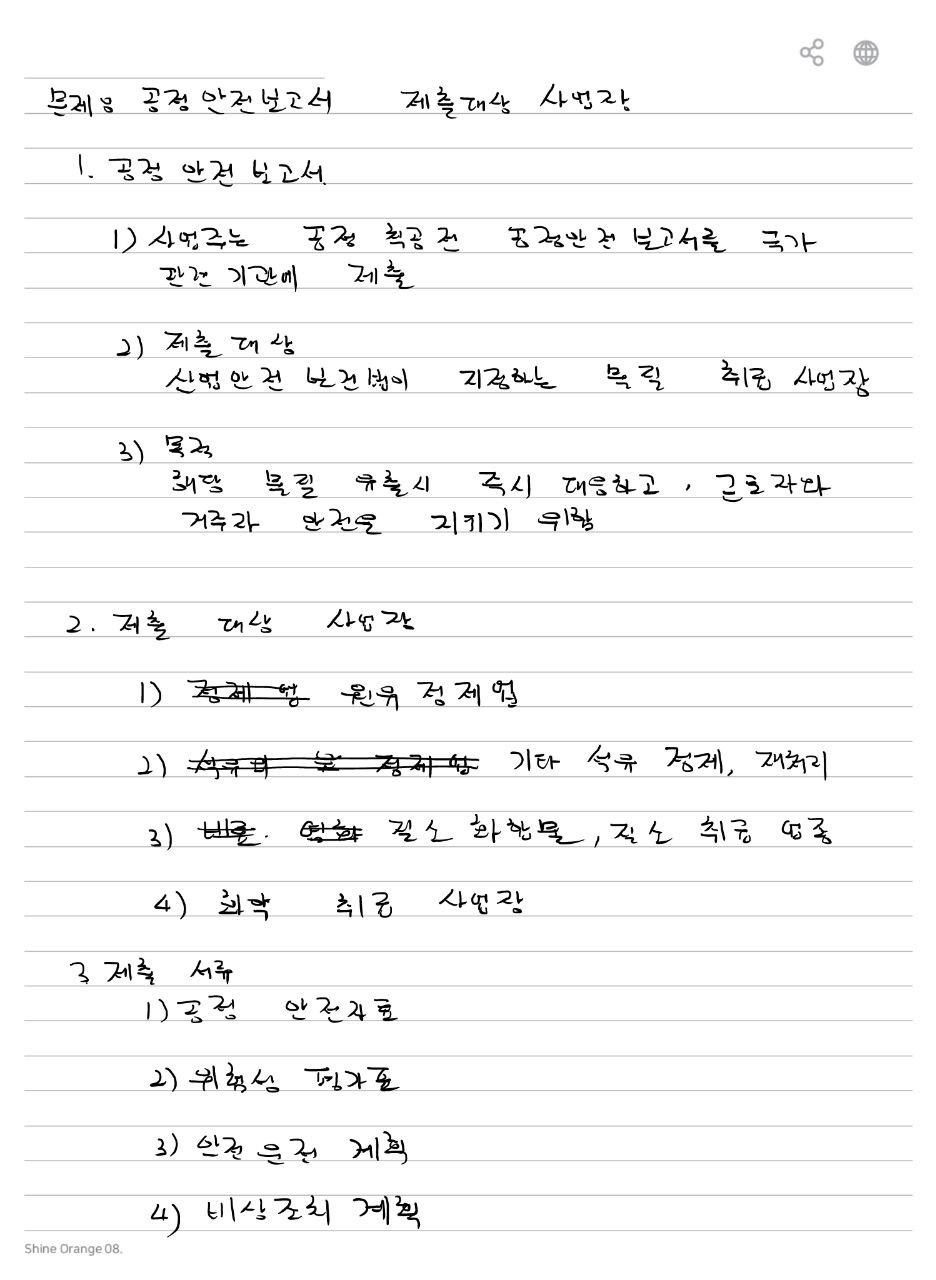 문제 8 공정안전보고서 제출대상 사업장
1. 공정 안전 보고서.
1) 사업주는 공정 착공 전 공정안전 보고서를 국가
관련 기관에 제출
2) 제출 대상
산업안전 보건법이 지정하는 물질 취급 사업장
3) 목적
해당 물질 유출시 즉시 대응하고, 근로자와
거주자 안전을 지키기 위함
2. 제출 대상 사업장
1) 정제 업 원유 정제업
2) 기타 석유 정제, 재처리
3) 비료. 질소 화합물, 질소 취급 업종
4) 화학 취급 사업장
3 제출 서류
1) 공정 안전자료
2) 위험성 평가표
3) 안전 운전 계획
4) 비상조치 계획
Shine Orange 08.